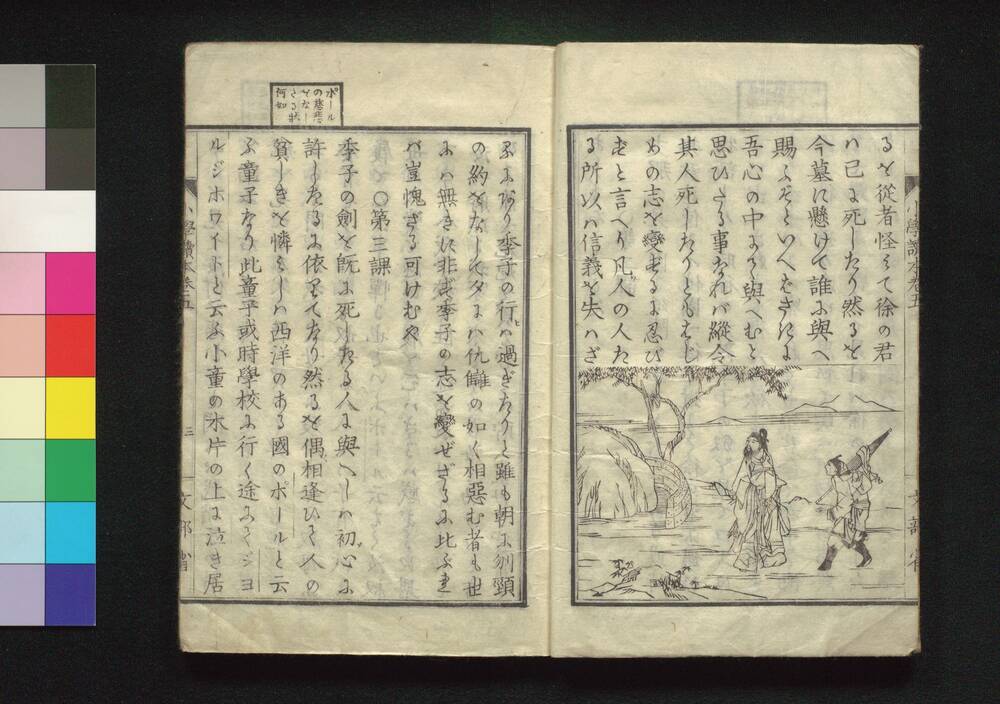 るを從者怪みて徐の君
ハ已に死したり然るを
今墓に懸けて誰に與へ
賜ふぞといへばさきに
吾心の中にて與へむと
思ひたる事なれバ縱令
其人死したりともはじ
めの志を變ずるに忍び
ずと言へり凡人の人た
る所以ハ信義を失ハざ
小學讀本卷五
文部省
ポール
の慈悲
をなし
たる狀
何如
るにあり季子の行ハ過ぎたりと雖も朝に刎頸
の約をなして夕にハ仇讎の如く相惡む者も世
にハ無きに非ず季子の志を變ぜざるに比ぶれ
バ豈愧ざる可けむや
〇第三課
季子の劍を既に死したる人に與へしハ初心に
許したるに依りてなり然るを偶相逢ひて人の
貧しきを憐みしハ西洋のある國のポールと云
ふ童子なり此童子或時學校に行く途にてジヨ
ルジホワイトと云ふ小童の氷片の上に泣き居
小學讀本卷五
三
文部省